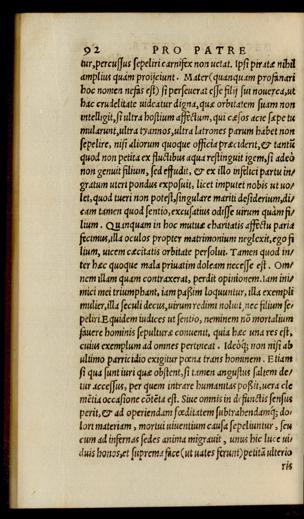 92 PRO PATRE
tur, percussus sepeliri carnifex non uetat. Ipsi piratæ nihil
amplius quàm proijciunt. Mater (quanquam profanari
hoc nomen nefas est) si perseuerat esse filij sui nouerca, ut
hac crudelitate uideatur digna, quæ orbitatem suam non
intelligit, si ultra hostium affectum, qui cæsos acie sæpe tu
mularunt, ultra tyrannos, ultra latrones parum habet non
sepelire, nisi aliorum quoque officia præcident, & tantũ
quod non petita ex fluctibus aqua restinguit igem, si adeò
non genuit filium, sed effudit, & ex illo infelici partu in/
gratum uteri pondus exposuit, licet imputet nobis ut uo/
let, quod tueri non potest, singulare mariti desiderium, di/
cam tamen quod sentio, excusatius odisse uirum quàm fi/
lium. Quanquam in hoc mutuæ charitatis affectu paria
fecimus, illa oculos propter matrimonium neglexit, ego fi
lium, uicem cæcitatis orbitate persolui. Tamen quod in/
ter hæc quoque mala priuatim doleam necesse est. Om/
nem illam quam contraxerat, perdit opinionem. iam ini/
mici mei triumphant, iam passim loquuntur, illa exempli
mulier, illa seculi decus, uirum redimi noluit, nec filium se/
peliri. Equidem iudices ut sentio, neminem nõ mortalium
fauere hominis sepulturæ conuenit, quia hæc una res est,
cuius exemplum ad omnes pertineat. Ideoq́; non nisi ab
ultimo parricidio exigitur pœna trans hominem. Etiam
si qua sunt iuri quæ obstent, si tamen angustus saltem de/
tur accessus, per quem intrare humanitas poßit, uera cle
mẽtia occasione cõtẽta est. Siue omnis in defunctis sensus
perit, & ad operiendam fœditatem subtrahendamq́; do/
lori materiam, mortui uiuentium causa sepeliuntur, seu
cum ad infernas sedes anima migrauit, unus hic luce ui/
duis honos, et suprema face (ut uates ferunt) petitã ulterio
ris